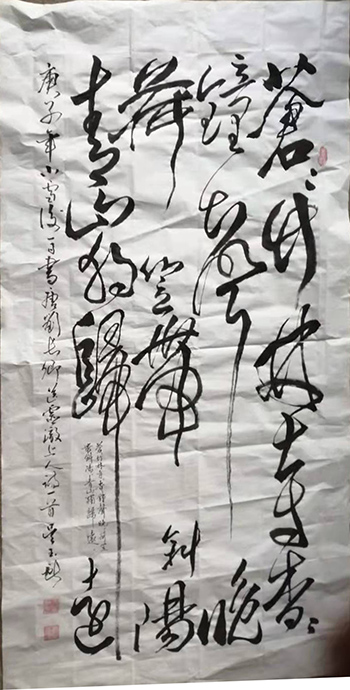 蒼〻竹林寺杳〻
鐘聲晚
荷笠帶斜陽
青山獨歸遠
蒼〻竹林寺杳〻鐘聲晚荷笠
帶斜陽青山獨歸遠
庚子年小雪後一日書唐劉長卿送靈澈上人詩一首